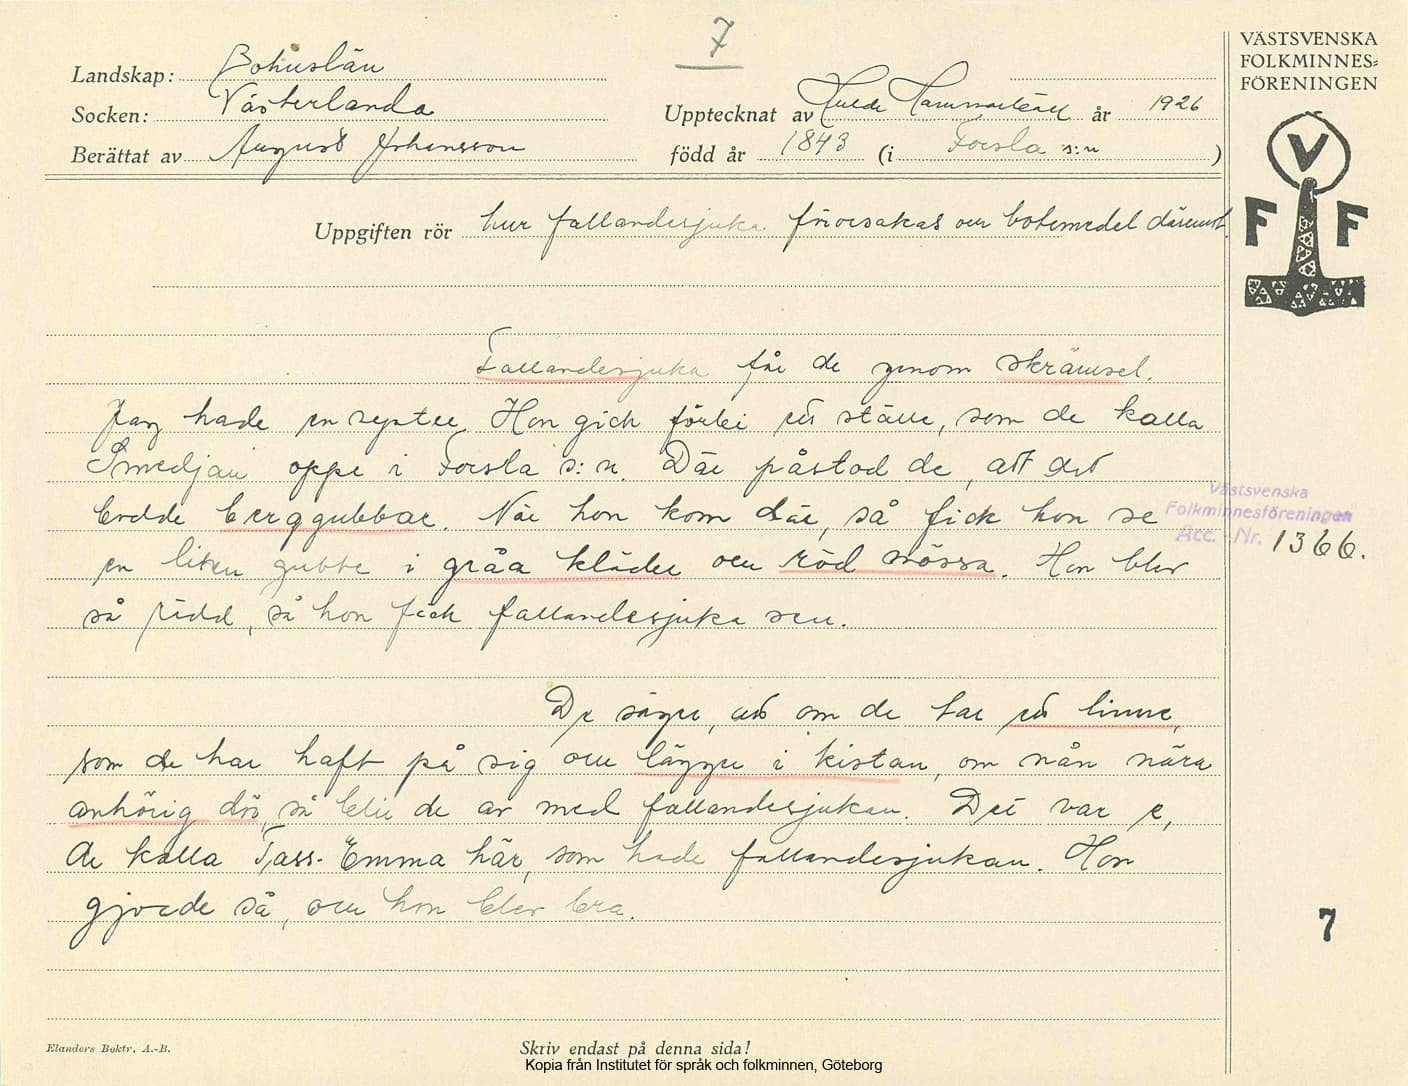 7
VÄSTSVENSKA
FOLKMINNES-
FÖRENINGEN
V
F F
Landskap: Bohuslän
Socken: Västerlanda
Upptecknat av Hulda Hammarbäck år 1926
Berättat av August Johansson
född år 1843 (i Foesla s:n )
Uppgiften rör hur fallandesjuka förorsakas och botemedel däremot.
Fallandesjuka får de genom skrämsel.
Jag hade en syster. Hon gick förbi ett ställe, som de kalla
Smedjan oppe i Foesla s:n. Där påstod de, att det
bodde berggubbar. När hon kom där, så fick hon se
en liten gubbe i gråa kläder och röd mössa. Hon blev
så rädd, så hon fick fallandesjuka sen.
De säger, att om de tar ett linne,
som de har haft på sig och lägger i kistan, om nån nära
anhörig dör, så blir de av med fallandesjukan. Det var e,
de kalla Tass-Emma här, som hade fallandesjukan. Hon
gjorde så, och hon blev bra.
Västsvenska
Folkminnesföreningen
Acc. Nr. 1366.
7
Elanders Boktr. A.-B.
Skriv endast på denna sida!
Kopia från Institutet för språk och folkminnen, Göteborg